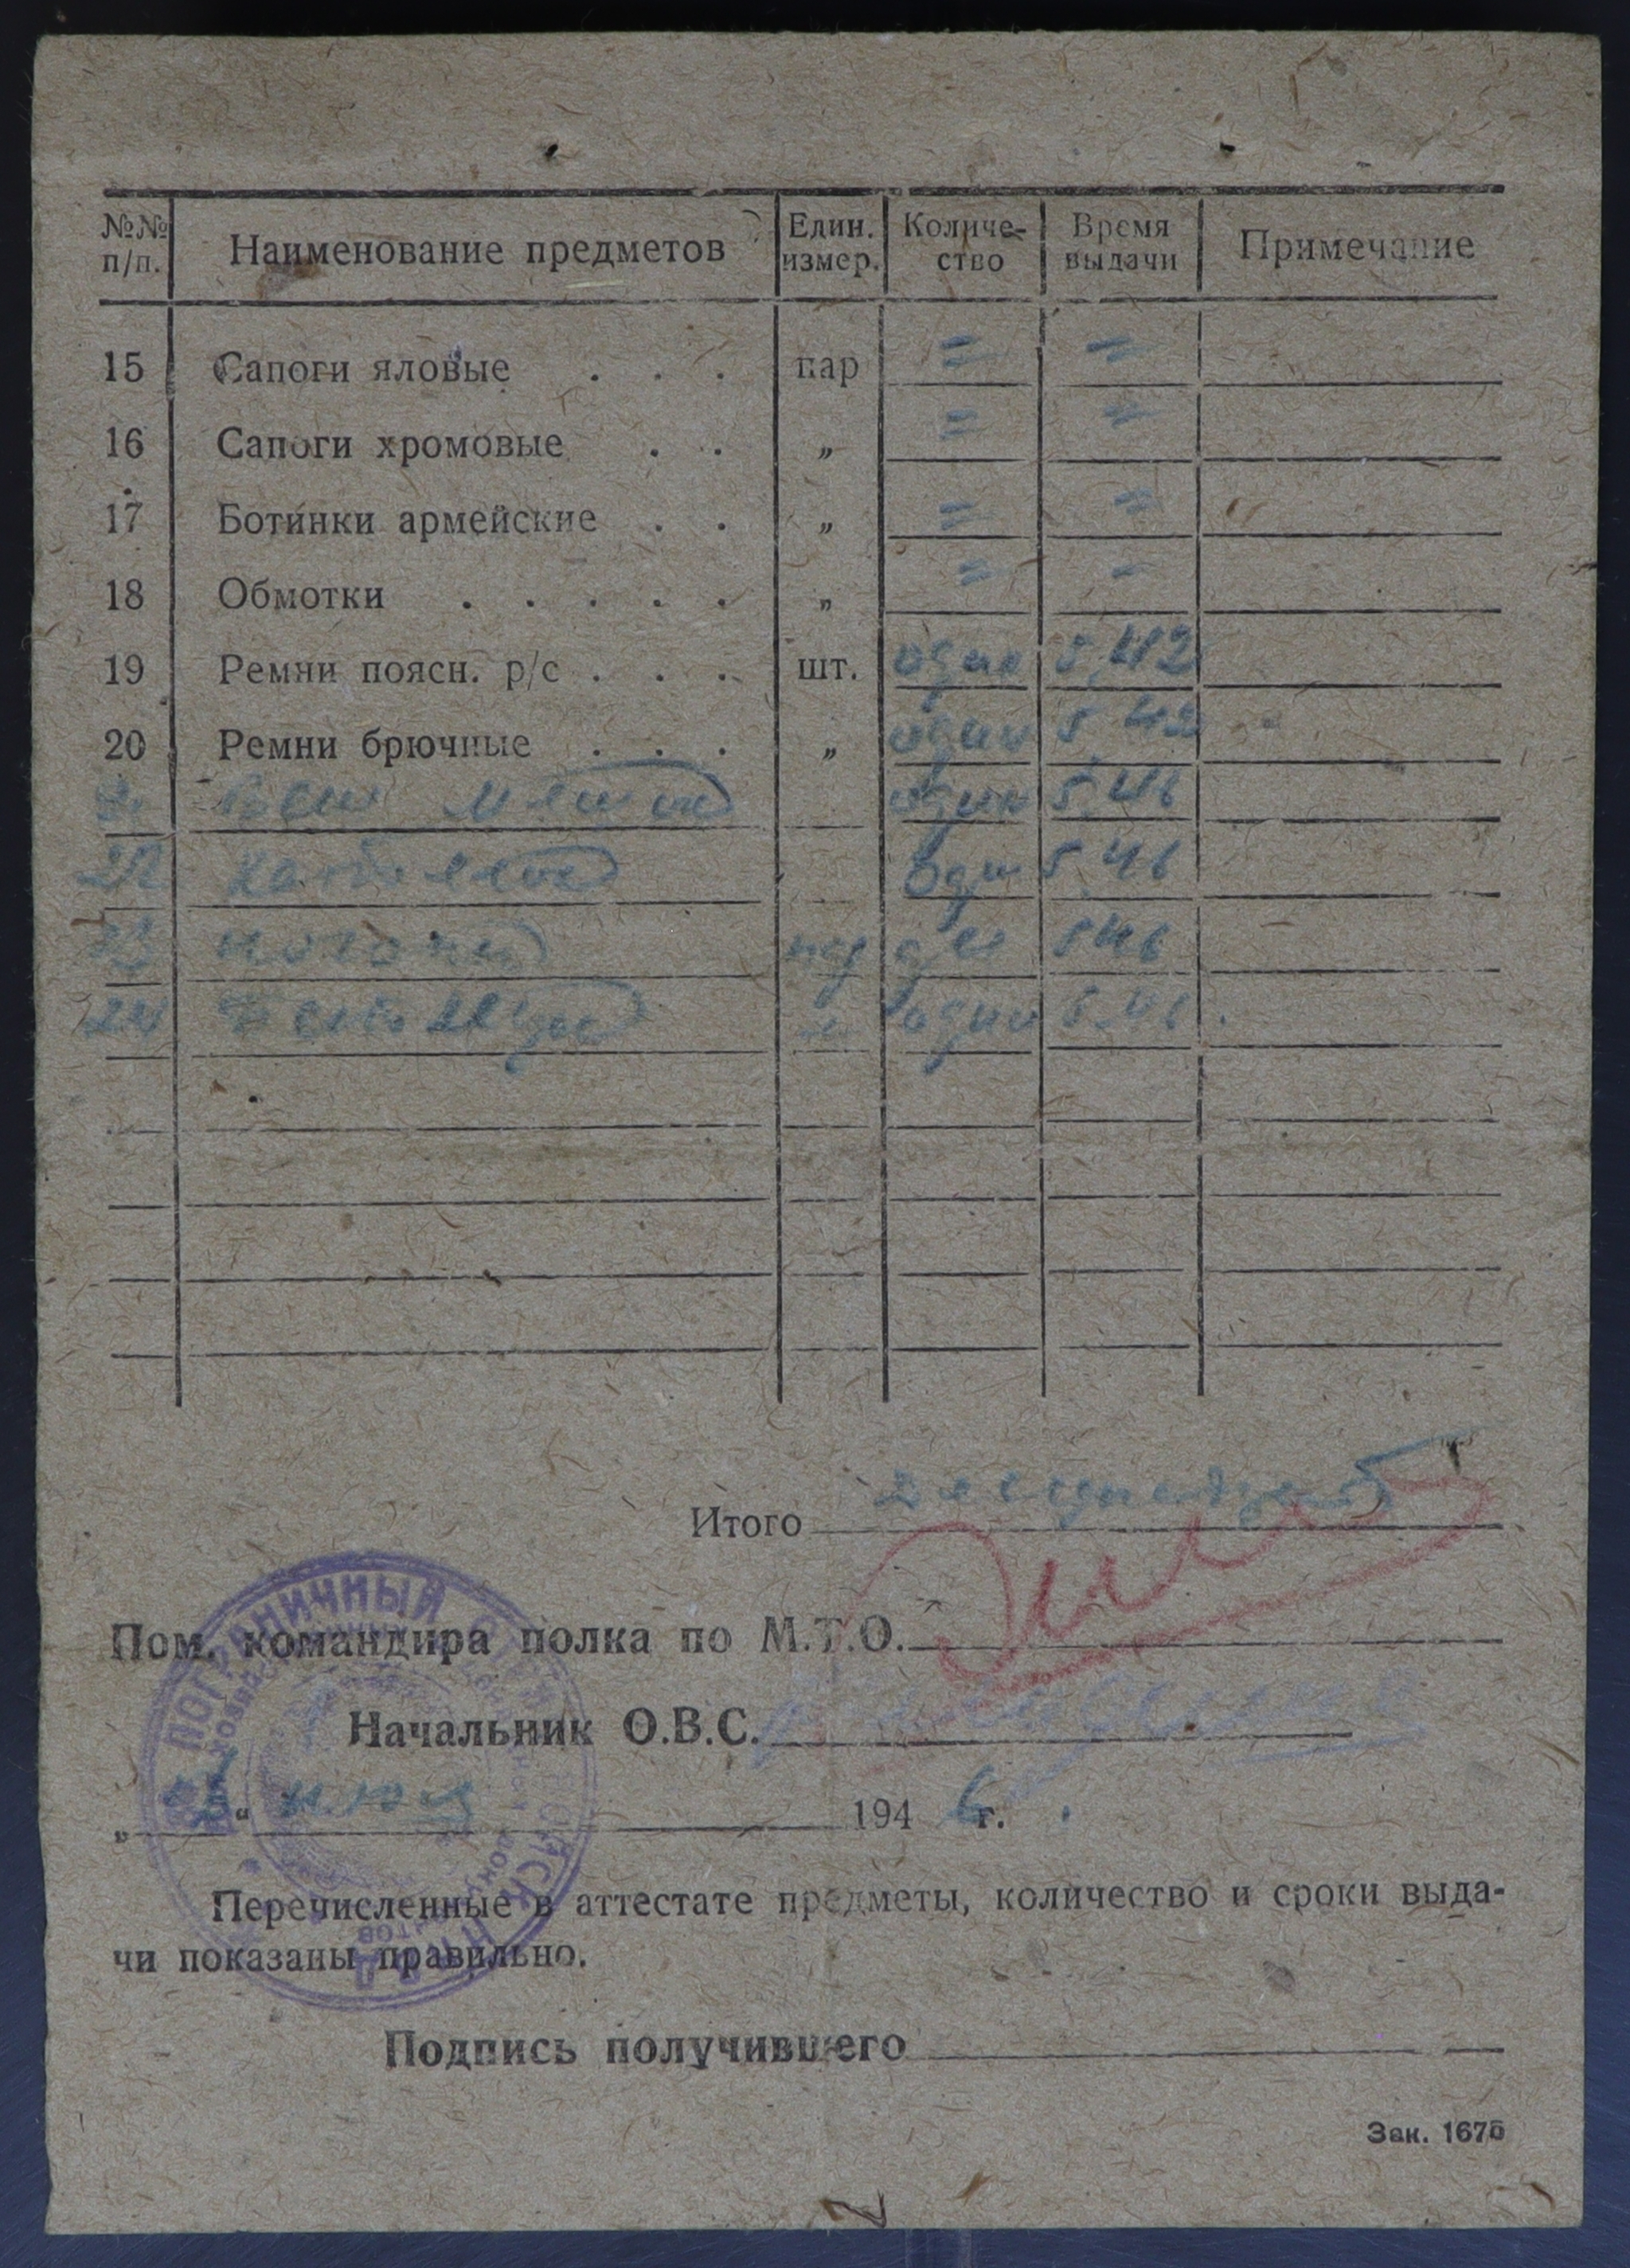 №№ п/п. Наименование предметов Един. измер. Количе-ство Время выдачи Примечание
15 Сапоги яловые . . . пар = =
16 Сапоги хромовые . . „ = =
17 Ботинки армейские . . „ = =
18 Обмотки . . . . . „ = =
19 Ремни поясн. р/с . . . шт. один 5.42
20 Ремни брючные . . . „ один 5.42
вещ мешок один 5.46
22 Котелок один 5.46
23 погоны пар две 5 46
24 один 5.46
Итого
Пом. командира полка по М.Т.О.
Начальник О.В.С.
„ “ июля 1946 г.
Перечисленные в аттестате предметы, количество и сроки выда-
чи показаны правильно.
Подпись получившего
Зак. 1676
ПОГРАНИЧНЫЙ